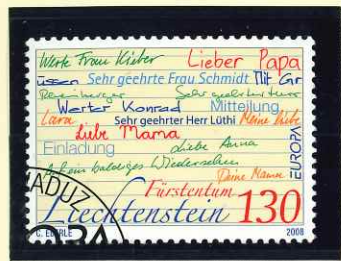 Werte Frau Kieber Lieber Papa
üssen Sehr geehrte Frau Schmidt Mit Gr
Sehr geehrter Herr
Werter Konrad Mitteilung
Lara Sehr geehrter Herr Lüthi Meine Liebe
Liebe Mama
Einladung Liebe Anna
Auf ein baldiges Wiedersehen
EUROPA
Deine Mama
Fürstentum
Liechtenstein 130
VADUZ
C. EBERLE 2008